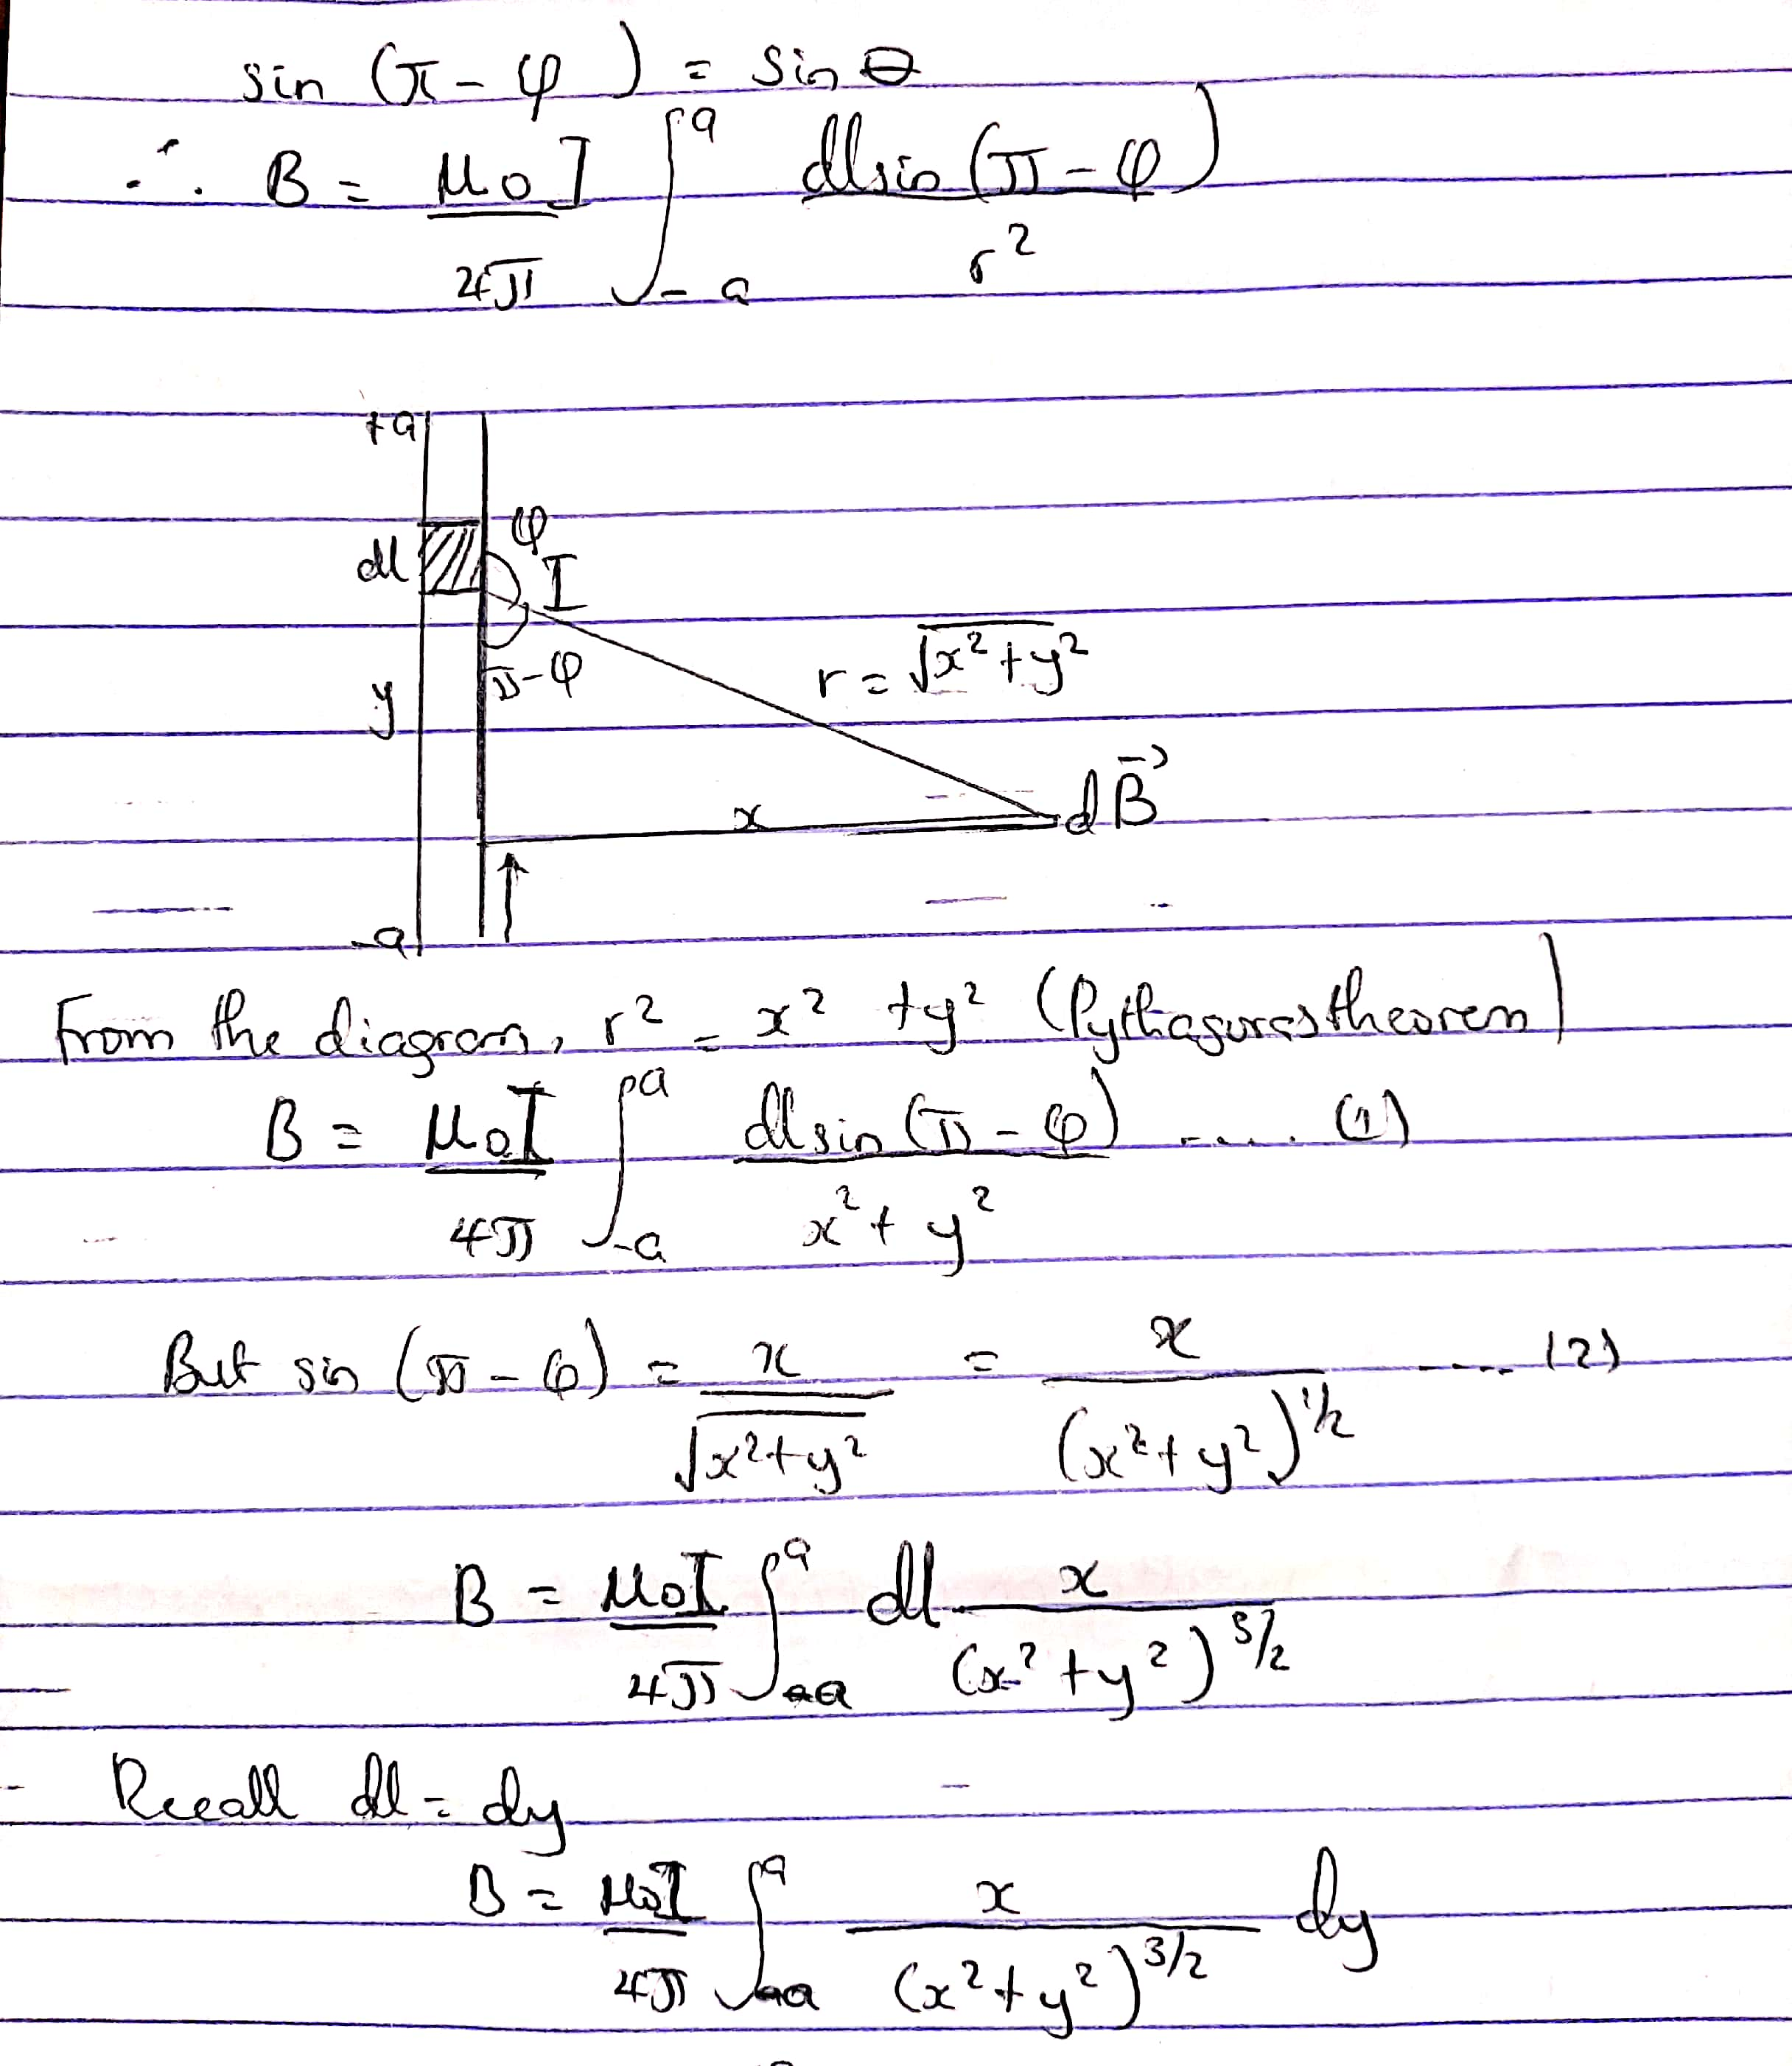 sin (π - φ) = sin θ
∴ B = μ₀I/4π ∫₋ₐᵃ dl sin (π - φ)/r²
+a
φ
dl
I
π-φ
r = √x²+y²
y
dB⃗
x
-a
From the diagram, r² = x² + y² (Pythagoras theorem)
B = μ₀I/4π ∫₋ₐᵃ dl sin (π - φ)/x² + y² ..... (1)
But sin (π - φ) = x/√x²+y² = x/(x²+y²)^1/2 .... (2)
B = μ₀I/4π ∫₋ₐᵃ dl x/(x²+y²)^3/2
Recall dl = dy
B = μ₀I/4π ∫₋ₐᵃ x/(x²+y²)^3/2 dy